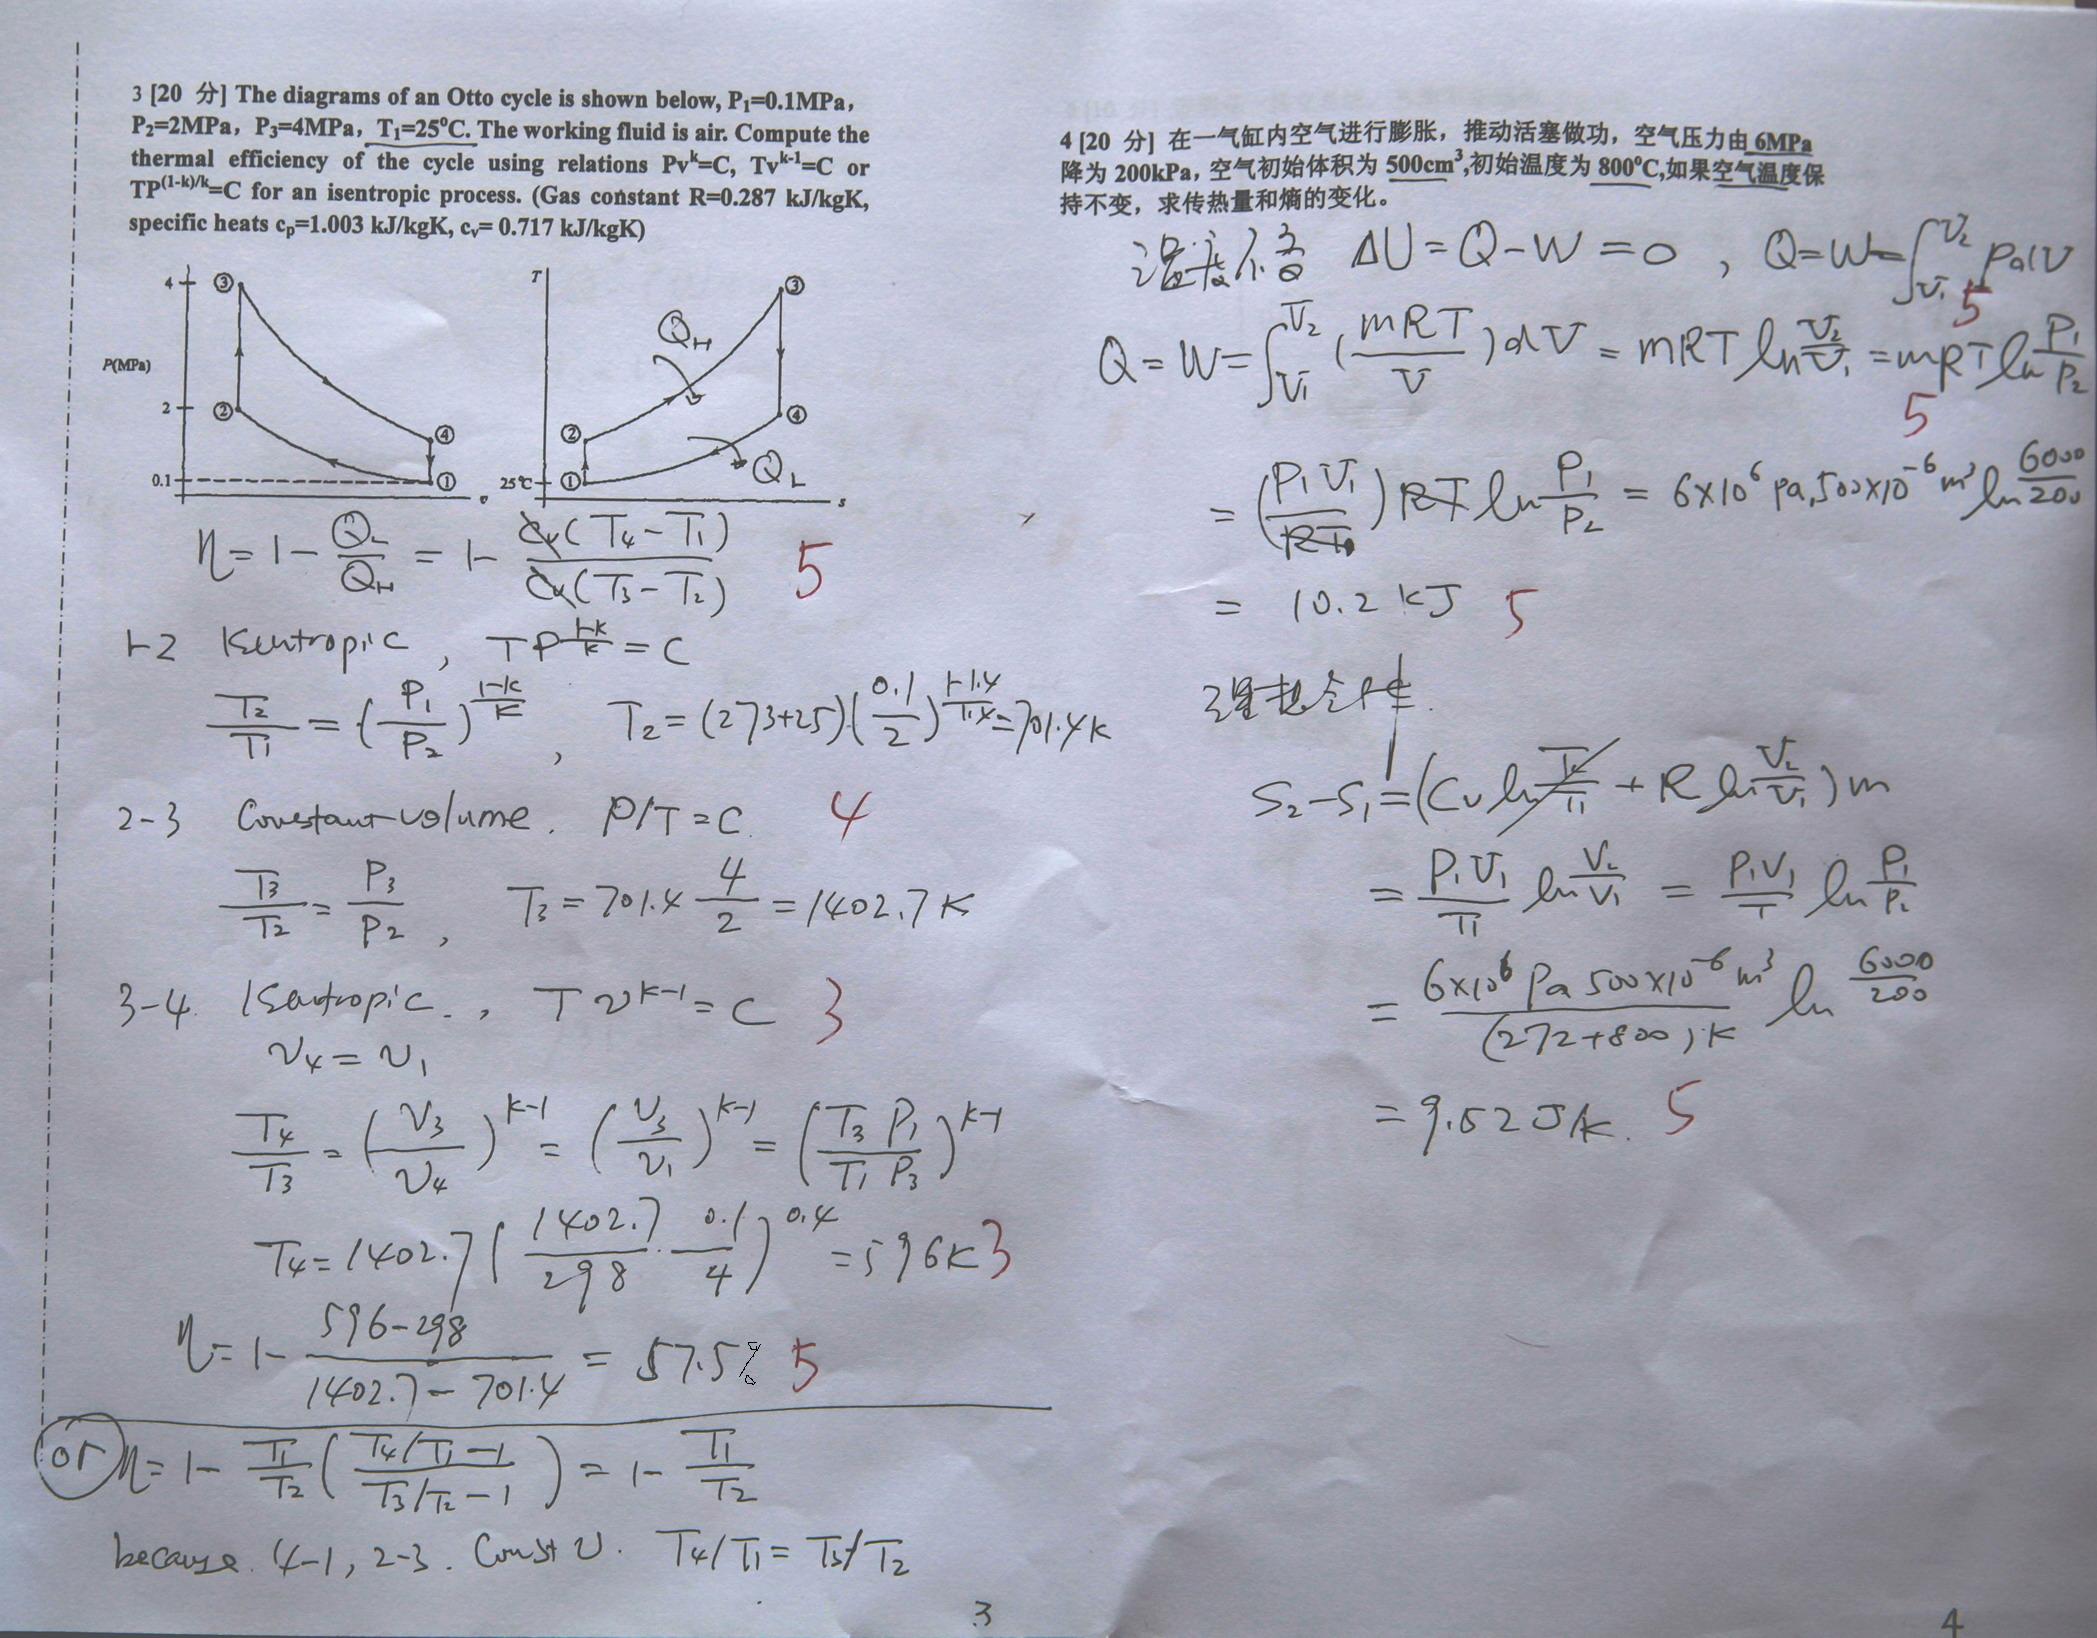 3 [20 分] The diagrams of an Otto cycle is shown below, P₁=0.1MPa,
P₂=2MPa, P₃=4MPa, T₁=25°C. The working fluid is air. Compute the
thermal efficiency of the cycle using relations Pvᵏ=C, Tvᵏ⁻¹=C or
TP^(1-k)/k=C for an isentropic process. (Gas constant R=0.287 kJ/kgK,
specific heats cp=1.003 kJ/kgK, cv= 0.717 kJ/kgK)
4 ③
P(MPa)
2 ② ④
0.1 ① v
T ③
Q_H
② ④
25°C ① Q_L
s
η = 1 - Q_L/Q_H = 1 - Cv(T₄-T₁)/Cv(T₃-T₂) 5
1-2 Isentropic, TP^(1-k)/k = C
T₂/T₁ = (P₁/P₂)^(1-k)/k, T₂ = (273+25)(0.1/2)^(1-1.4)/1.4 = 701.4K
2-3 Constant volume. P/T = C. 4
T₃/T₂ = P₃/P₂, T₃ = 701.4 4/2 = 1402.7 K
3-4. Isentropic., Tv^k-1 = C 3
v₄ = v₁
T₄/T₃ = (v₃/v₄)^k-1 = (v₃/v₁)^k-1 = (T₃ P₁/T₁ P₃)^k-1
T₄ = 1402.7 (1402.7/298 · 0.1/4)^0.4 = 596K 3
η = 1 - (596-298)/(1402.7-701.4) = 57.5% 5
or η = 1 - T₁/T₂ ( (T₄/T₁-1)/(T₃/T₂-1) ) = 1 - T₁/T₂
because. 4-1, 2-3. Const v. T₄/T₁ = T₃/T₂
3
4 [20 分] 在一气缸内空气进行膨胀，推动活塞做功，空气压力由 6MPa
降为 200kPa，空气初始体积为 500cm³,初始温度为 800°C,如果空气温度保
持不变，求传热量和熵的变化。
温度不变 ΔU = Q-W = 0, Q=W=∫_V₁^V₂ PdV 5
Q = W = ∫_V₁^V₂ (mRT/V)dV = mRT ln V₂/V₁ = mRT ln P₁/P₂ 5
= (P₁V₁/RT₁) RT ln P₁/P₂ = 6×10⁶ Pa, 500×10⁻⁶ m³ ln 6000/200
= 10.2 kJ 5
理想气体.
S₂-S₁ = (Cv ln T₂/T₁ + R ln V₂/V₁) m
= P₁V₁/T₁ ln V₂/V₁ = P₁V₁/T ln P₁/P₂
= 6×10⁶ Pa 500×10⁻⁶ m³/(272+800)K ln 6000/200
= 9.52 J/K. 5
4